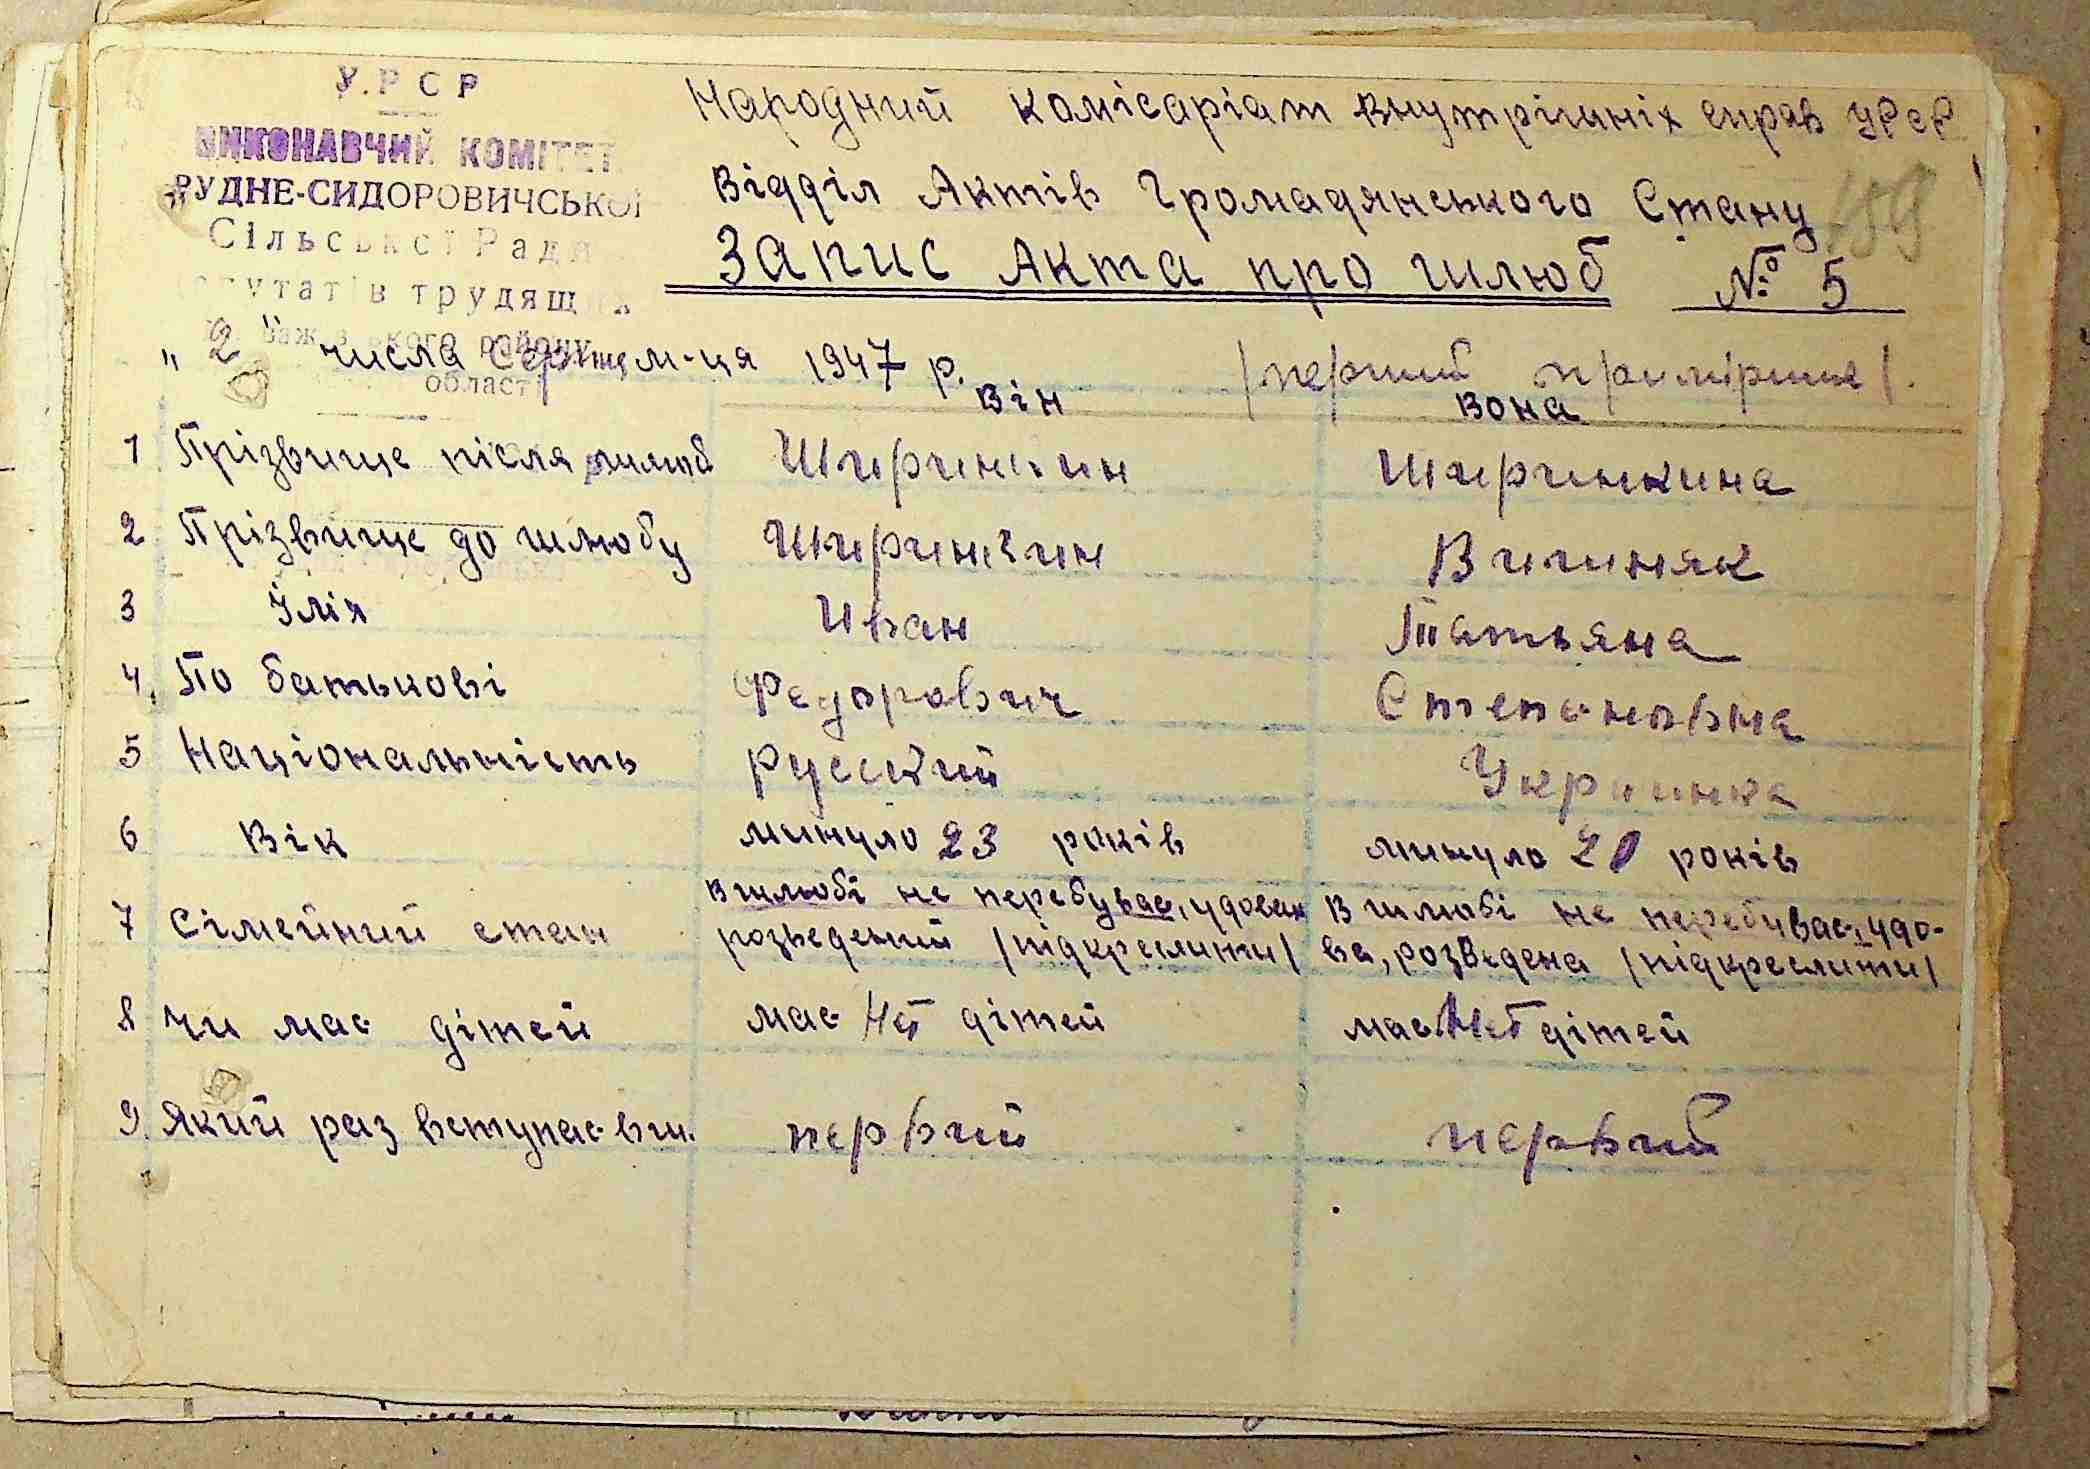 У.Р С Р
ВИКОНАВЧИЙ КОМІТЕТ
РУДНЕ-СИДОРОВИЧСЬКОЇ
Сільської Ради
депутатів трудящих
ського району
області
Народний комісаріат внутрішніх справ УРСР
Відділ Актів Громадянського Стану
Запис Акта про шлюб № 5
189
"2" числа Серпня м-ця 1947 р. /перший примірник/.
Він Вона
1 Прізвище після шлюб Ширинкин Ширинкина
2 Прізвище до шлюбу Ширинкин Вишняк
3 Імія Иван Татьяна
4. По батькові Федорович Степановна
5 Національність Русский Украинка
6 Вік минуло 23 років минуло 20 років
7 Сімейний стан В шлюбі не перебуває, удовец розведений /підкреслити/ В шлюбі не перебуває, удо-
ва, розведена /підкреслити/
8 Чи має дітей має нет дітей має Нет дітей
9. Який раз вступає в ш. первий первий